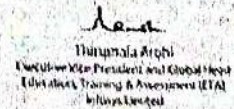 Thirumala Arohi
Executive Vice President and Global Head
Education, Training & Assessment (ETA)
Infosys Limited